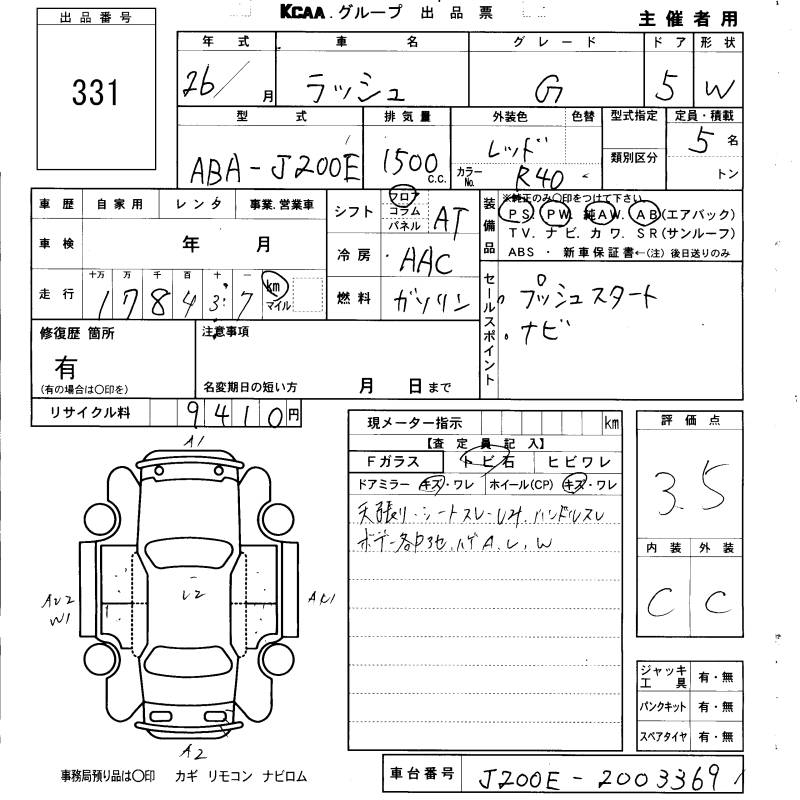 KCAA.グループ 出品票
主催者用
出品番号
331
年式 車名 グレード ドア 形状
26/月 ラッシュ G 5 W
型式 排気量 外装色 色替 型式指定 定員・積載
ABA-J200E 1500 c.c. レッド カラーNo. R40 類別区分 5名
トン
車歴 自家用 レンタ 事業.営業車
シフト フロア コラム パネル AT
装備品 ※純正のみ〇印をつけて下さい。
PS. PW. 純AW. AB(エアバック)
TV. ナビ. カワ. SR(サンルーフ)
ABS ・ 新車保証書←(注)後日送りのみ
車検 年 月
冷房 AAC
走行 十万 万 千 百 十 一
178437 km マイル
燃料 ガソリン
セールスポイント
プッシュスタート
ナビ
修復歴 箇所
有
(有の場合は〇印を)
注意事項
名変期日の短い方 月 日まで
リサイクル料 9410円
現メーター指示 km
【査定員記入】
Fガラス トビ石 ヒビワレ
ドアミラー キズ・ワレ ホイール(CP) キズ・ワレ
天張り・シートスレ・ハンドルスレ
ボデー各部 A, U, W
評価点
3.5
内装 外装
C C
A1
U2
AU2
W1
A2
ジャッキ工具 有・無
パンクキット 有・無
スペアタイヤ 有・無
事務局預り品は〇印 カギ リモコン ナビロム
車台番号 J200E-2003369